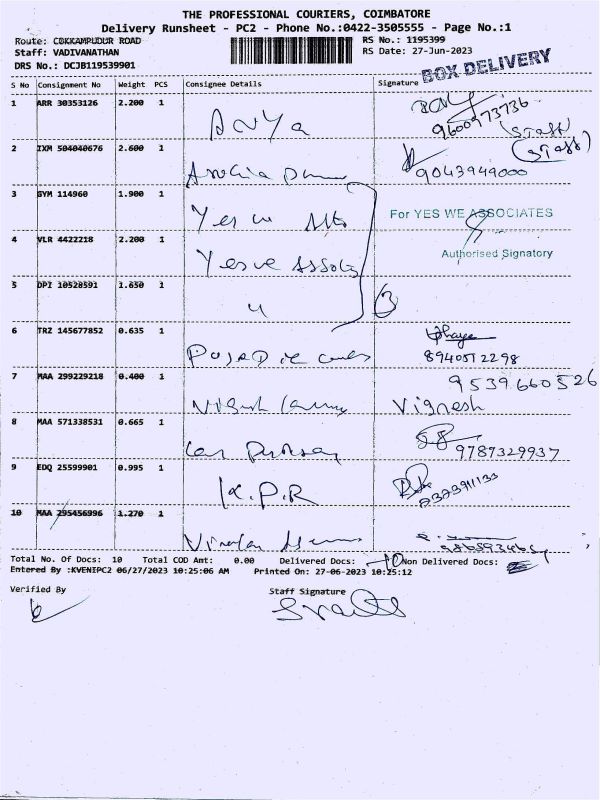 THE PROFESSIONAL COURIERS, COIMBATORE
Delivery Runsheet - PC2 - Phone No.:0422-3505555 - Page No.:1
Route: COKKAMPUDUR ROAD
Staff: VADIVANATHAN
DRS No.: DCJB119539901
RS No.: 1195399
RS Date: 27-Jun-2023
BOX DELIVERY
S No Consignment No Weight PCS Consignee Details Signature
1 ARR 30353126 2.200 1 9600973736
(STAFF)
2 IXM 504040676 2.600 1 9043949000 (STAFF)
3 GYM 114960 1.900 1 Yes we
For YES WE ASSOCIATES
4 VLR 4422218 2.200 1 Yes we
Authorised Signatory
5 DPI 10528591 1.650 1 " 3
6 TRZ 145677852 0.635 1 8940572298
7 MAA 299229218 0.400 1 Vignesh
9539660526
8 MAA 571338531 0.665 1 9787329937
9 EDQ 25599901 0.995 1 K.P.R
10 MAA 295456996 1.270 1
Total No. Of Docs: 10 Total COD Amt: 0.00 Delivered Docs: 10 Non Delivered Docs:
Entered By :KVENIPC2 06/27/2023 10:25:06 AM Printed On: 27-06-2023 10:25:12
Verified By Staff Signature